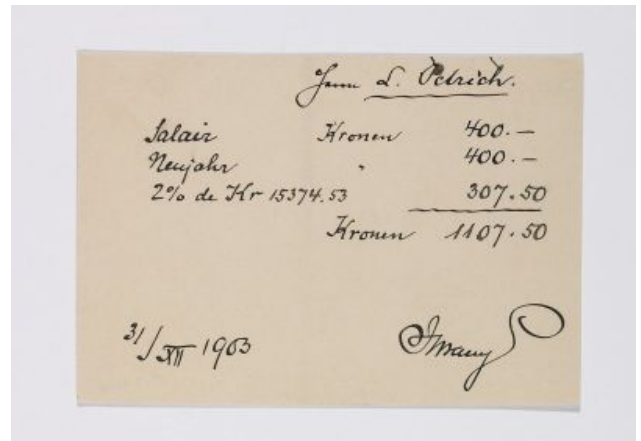 Herrn L. Petrich.
Salair Kronen 400.—
Neujahr " 400.—
2% de Kr 15374.53 307.50
Kronen 1107.50
31/XII 1903